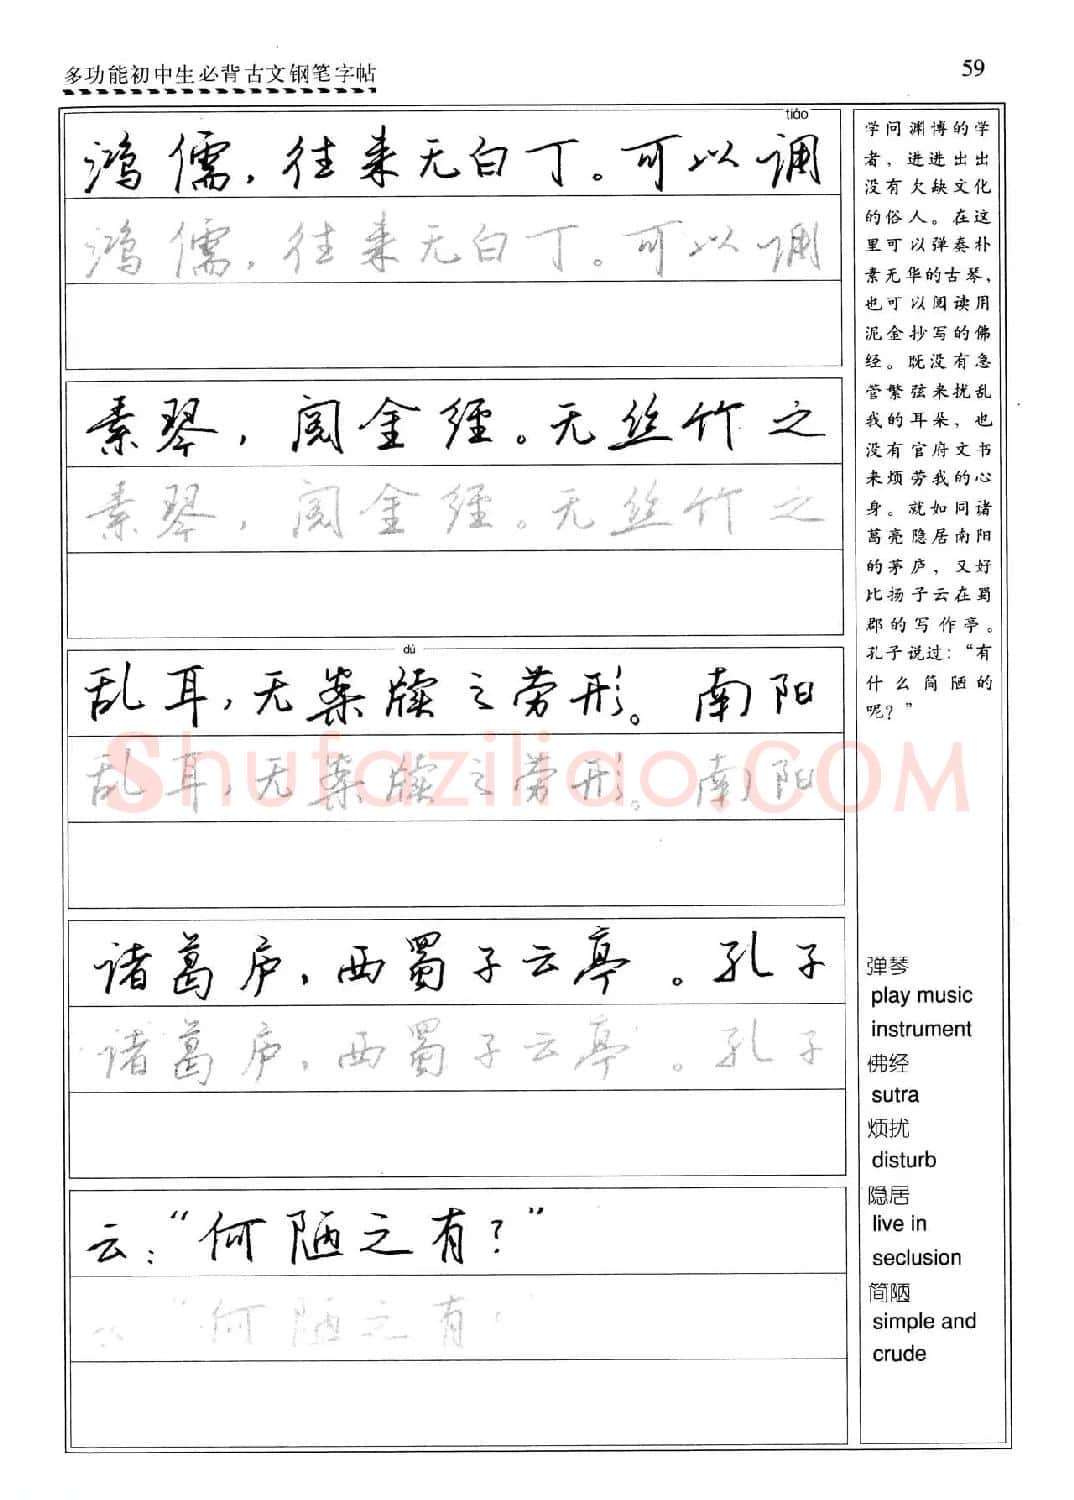 多功能初中生必背古文钢笔字帖
59
tiáo
鸿儒，往来无白丁。可以调
鸿儒，往来无白丁。可以调
素琴，阅金经。无丝竹之
素琴，阅金经。无丝竹之
dú
乱耳，无案牍之劳形。南阳
乱耳，无案牍之劳形。南阳
诸葛庐，西蜀子云亭。孔子
诸葛庐，西蜀子云亭。孔子
云：“何陋之有？”
云“何陋之有
学问渊博的学
者，进进出出
没有欠缺文化
的俗人。在这
里可以弹奏朴
素无华的古琴，
也可以阅读用
泥金抄写的佛
经。既没有急
管繁弦来扰乱
我的耳朵，也
没有官府文书
来烦劳我的心
身。就如同诸
葛亮隐居南阳
的茅庐，又好
比扬子云在蜀
郡的写作亭。
孔子说过：“有
什么简陋的
呢？”
弹琴
play music
instrument
佛经
sutra
烦扰
disturb
隐居
live in
seclusion
简陋
simple and
crude
Shufaziliao.COM